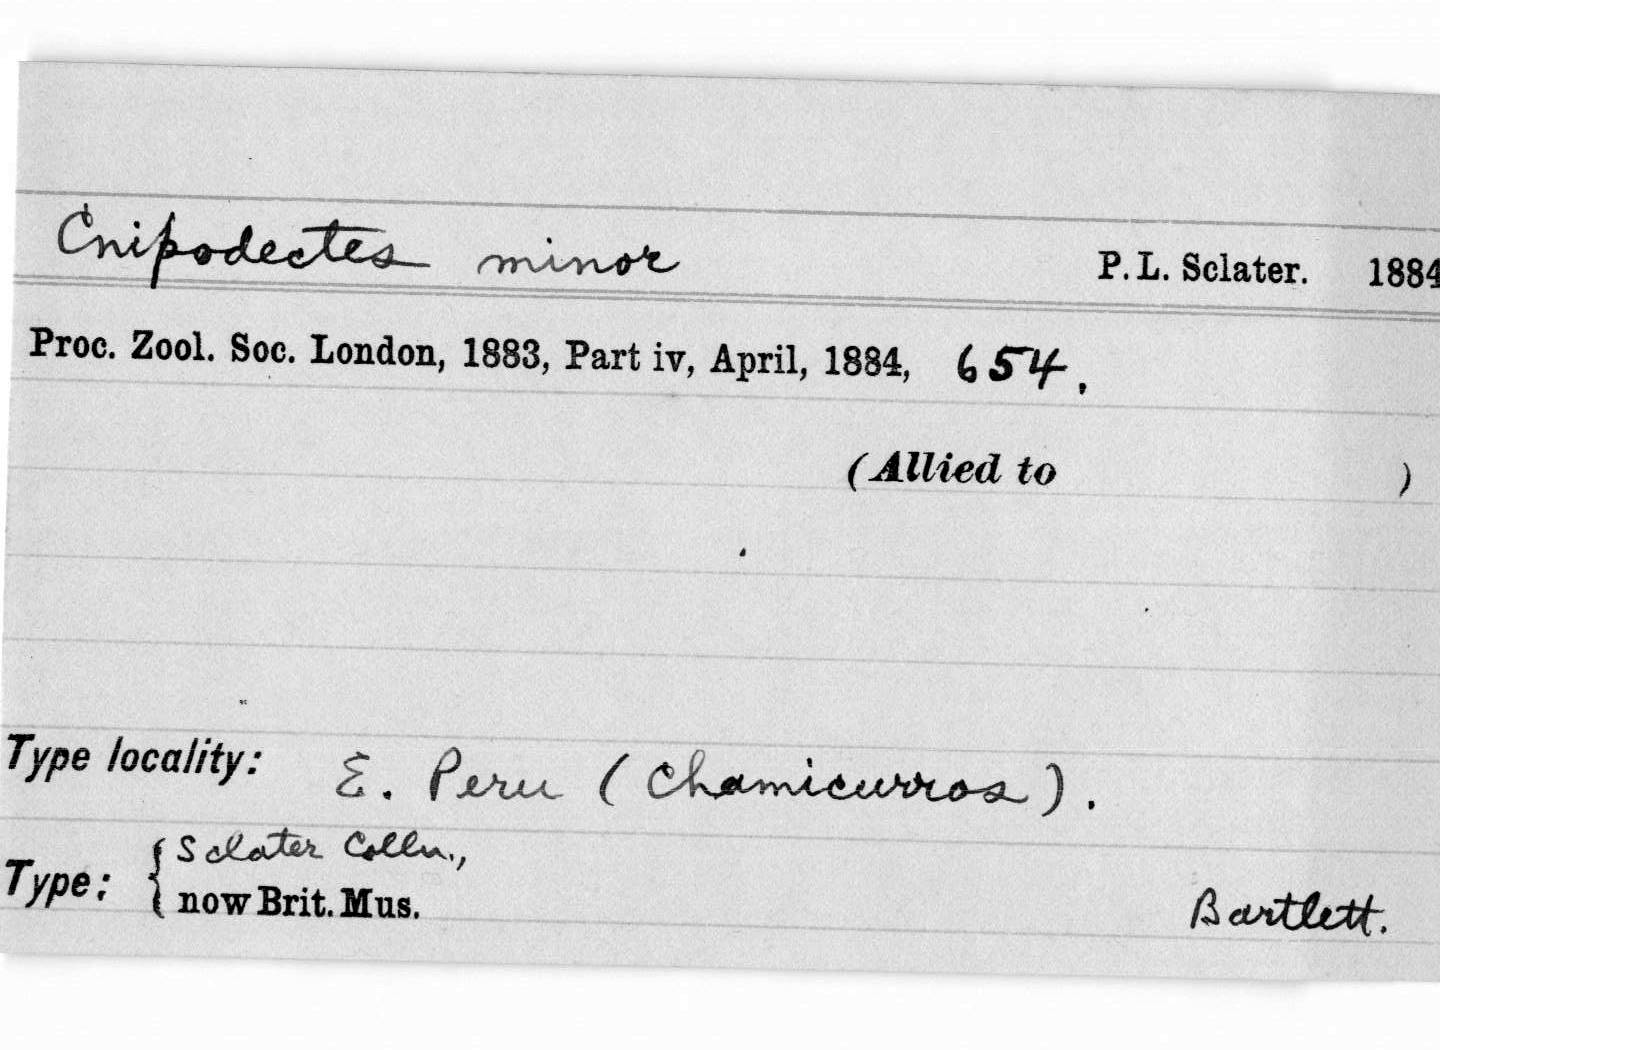 Cnipodectes minor P. L. Sclater. 1884
Proc. Zool. Soc. London, 1883, Part iv, April, 1884, 654.
(Allied to )
Type locality: E. Peru (Chamicurros).
Type: { Sclater Colln.,
now Brit. Mus. Bartlett.